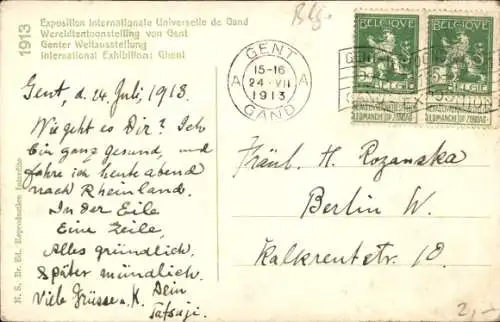 1913
Exposition Internationale Universelle de Gand
Wereldtentoonstelling von Gent
Genter Weltausstellung
International Exhibition: Ghent
Blg.
GENT
A A
15-16
24 · VII
1913
GAND
BELGIQUE BELGIQUE
5 5
BELGIË BELGIË
Gent, d. 24. Juli, 1913.
Wie geht es Dir? Ich
bin ganz gesund, und
fahre ich heute abend
nach Rheinland.
In der Eile
Eine Zeile,
Alles gründlich,
Später mündlich.
Viele Grüsse u. K. Dein
Tatsuji.
Fräul. H. Rozanska
Berlin W.
Kalkreutstr. 10.
N. S., Br. Ed. Reproduction Interdite
2,-